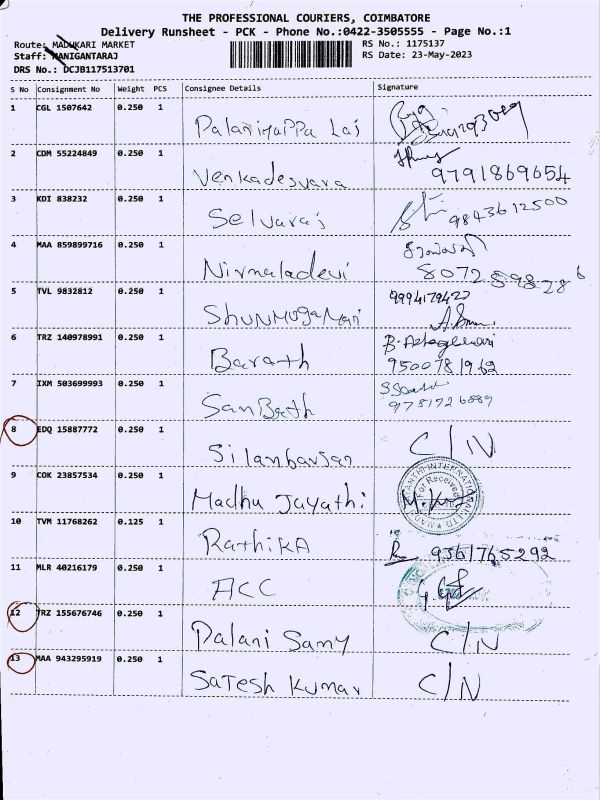 THE PROFESSIONAL COURIERS, COIMBATORE
Delivery Runsheet - PCK - Phone No.:0422-3505555 - Page No.:1
Route: MADUKARI MARKET
RS No.: 1175137
Staff: MANIGANTARAJ
RS Date: 23-May-2023
DRS No.: DCJB117513701
S No Consignment No Weight PCS Consignee Details Signature
1 CGL 1507642 0.250 1
Palaniyappa Las
2 CDM 55224849 0.250 1
Venkadesvara 9791869654
3 KDI 838232 0.250 1
Selvaraj 9843612500
4 MAA 859899716 0.250 1
Nirmaladevi 8072598286
5 TVL 9832812 0.250 1 9994179422
Shunmugamari
6 TRZ 140978991 0.250 1
Barath 9500781962
7 IXM 503699993 0.250 1
SanBath 9787726589
8 EDQ 15887772 0.250 1
Silambarsan C/N
9 COK 23857534 0.250 1
Madhu Jayathi
10 TVM 11768262 0.125 1
RathikA 9361765292
11 MLR 40216179 0.250 1
ACC
12 TRZ 155676746 0.250 1
Palani Samy C/N
13 MAA 943295919 0.250 1
Satesh Kumar C/N